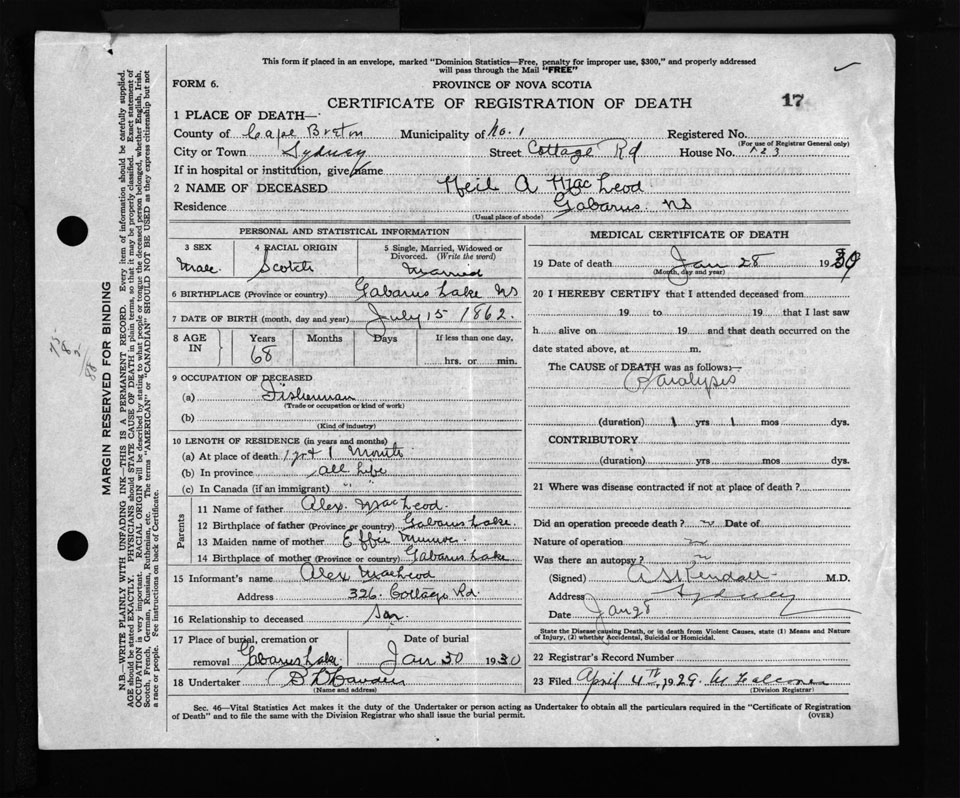 This form if placed in an envelope, marked "Dominion Statistics—Free, penalty for improper use, $300," and properly addressed
will pass through the Mail "FREE"
FORM 6.
PROVINCE OF NOVA SCOTIA
CERTIFICATE OF REGISTRATION OF DEATH
17
1 PLACE OF DEATH—
County of Cape Breton Municipality of No. 1 Registered No.
(For use of Registrar General only)
City or Town Sydney Street Cottage Rd House No.
If in hospital or institution, give name
2 NAME OF DECEASED Neil A MacLeod
Residence Gabarus NS
(Usual place of abode)
PERSONAL AND STATISTICAL INFORMATION
3 SEX 4 RACIAL ORIGIN 5 Single, Married, Widowed or Divorced. (Write the word)
Male Scotch Married
6 BIRTHPLACE (Province or country) Gabarus Lake NS
7 DATE OF BIRTH (month, day and year) July 15 1862.
8 AGE IN Years Months Days If less than one day,
68 hrs. or min.
9 OCCUPATION OF DECEASED
(a) Fisherman
(Trade or occupation or kind of work)
(b)
(Kind of industry)
10 LENGTH OF RESIDENCE (in years and months)
(a) At place of death 1 yr + 1 Month
(b) In province all life
(c) In Canada (if an immigrant) " "
Parents
11 Name of father Alex. MacLeod.
12 Birthplace of father (Province or country) Gabarus Lake.
13 Maiden name of mother Effie Munroe
14 Birthplace of mother (Province or country) Gabarus Lake
15 Informant's name Alex MacLeod
Address 326 Cottage Rd.
16 Relationship to deceased Son
17 Place of burial, cremation or removal Date of burial
Gabarus Lake. Jan 30 1930
18 Undertaker
(Name and address)
MEDICAL CERTIFICATE OF DEATH
19 Date of death Jan 28 1930
(Month, day and year)
20 I HEREBY CERTIFY that I attended deceased from
19 to 19 that I last saw
h alive on 19 and that death occurred on the
date stated above, at m.
The CAUSE of DEATH was as follows:—
Paralysis
(duration) 1 yrs 1 mos dys.
CONTRIBUTORY
(duration) yrs mos dys.
21 Where was disease contracted if not at place of death?
Did an operation precede death? Date of
Nature of operation
Was there an autopsy?
(Signed) A S Kendall M.D.
Address Sydney
Date Jan 28
State the Disease causing Death, or in death from Violent Causes, state (1) Means and Nature
of Injury, (2) whether Accidental, Suicidal or Homicidal.
22 Registrar's Record Number
23 Filed April 4th, 1929.
(Division Registrar)
Sec. 46—Vital Statistics Act makes it the duty of the Undertaker or person acting as Undertaker to obtain all the particulars required in the "Certificate of Registration
of Death" and to file the same with the Division Registrar who shall issue the burial permit.
(OVER)
MARGIN RESERVED FOR BINDING
N.B.—WRITE PLAINLY WITH UNFADING INK—THIS IS A PERMANENT RECORD. Every item of information should be carefully supplied.
AGE should be stated EXACTLY. PHYSICIANS should STATE CAUSE OF DEATH in plain terms, so that it may be properly classified. Exact statement of
OCCUPATION is very important. RACIAL ORIGIN will be described by stating to what people or tongue the deceased person belonged, whether English, Irish,
Scotch, French, German, Russian, Ruthenian, etc. The terms "AMERICAN" or "CANADIAN" SHOULD NOT BE USED as they express citizenship but not
a race or people. See instructions on back of Certificate.